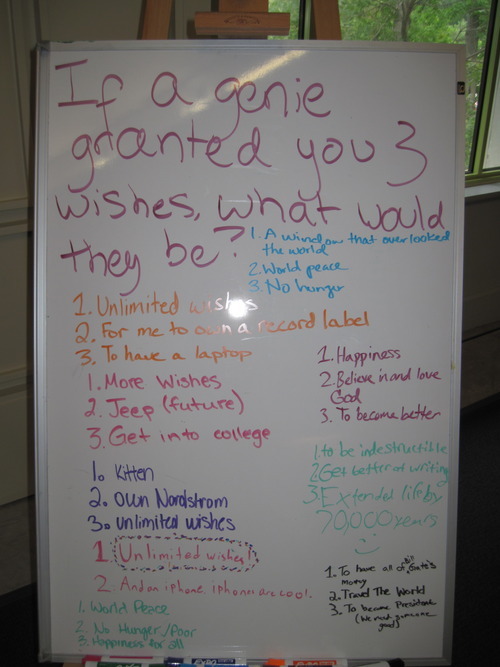 If a genie
granted you 3
wishes, what would
they be?
1. A window that overlooked
the world
2. World peace
3. No hunger
1. Unlimited wishes
2. For me to own a record label
3. To have a laptop
1. More Wishes
2. Jeep (future)
3. Get into college
1. Happiness
2. Believe in and love
God
3. To become better
1. Kitten
2. Own Nordstrom
3. unlimited wishes
1. to be indestructible
2. Get better at writing
3. Extended life by
70,000 years
1. Unlimited wishes!
2. And an iphone. iphones are cool.
1. World Peace
2. No Hunger/Poor
3. Happiness for all
1. To have all of Bill Gate's
money
2. Travel The World
3. To become President
(We need someone
good)